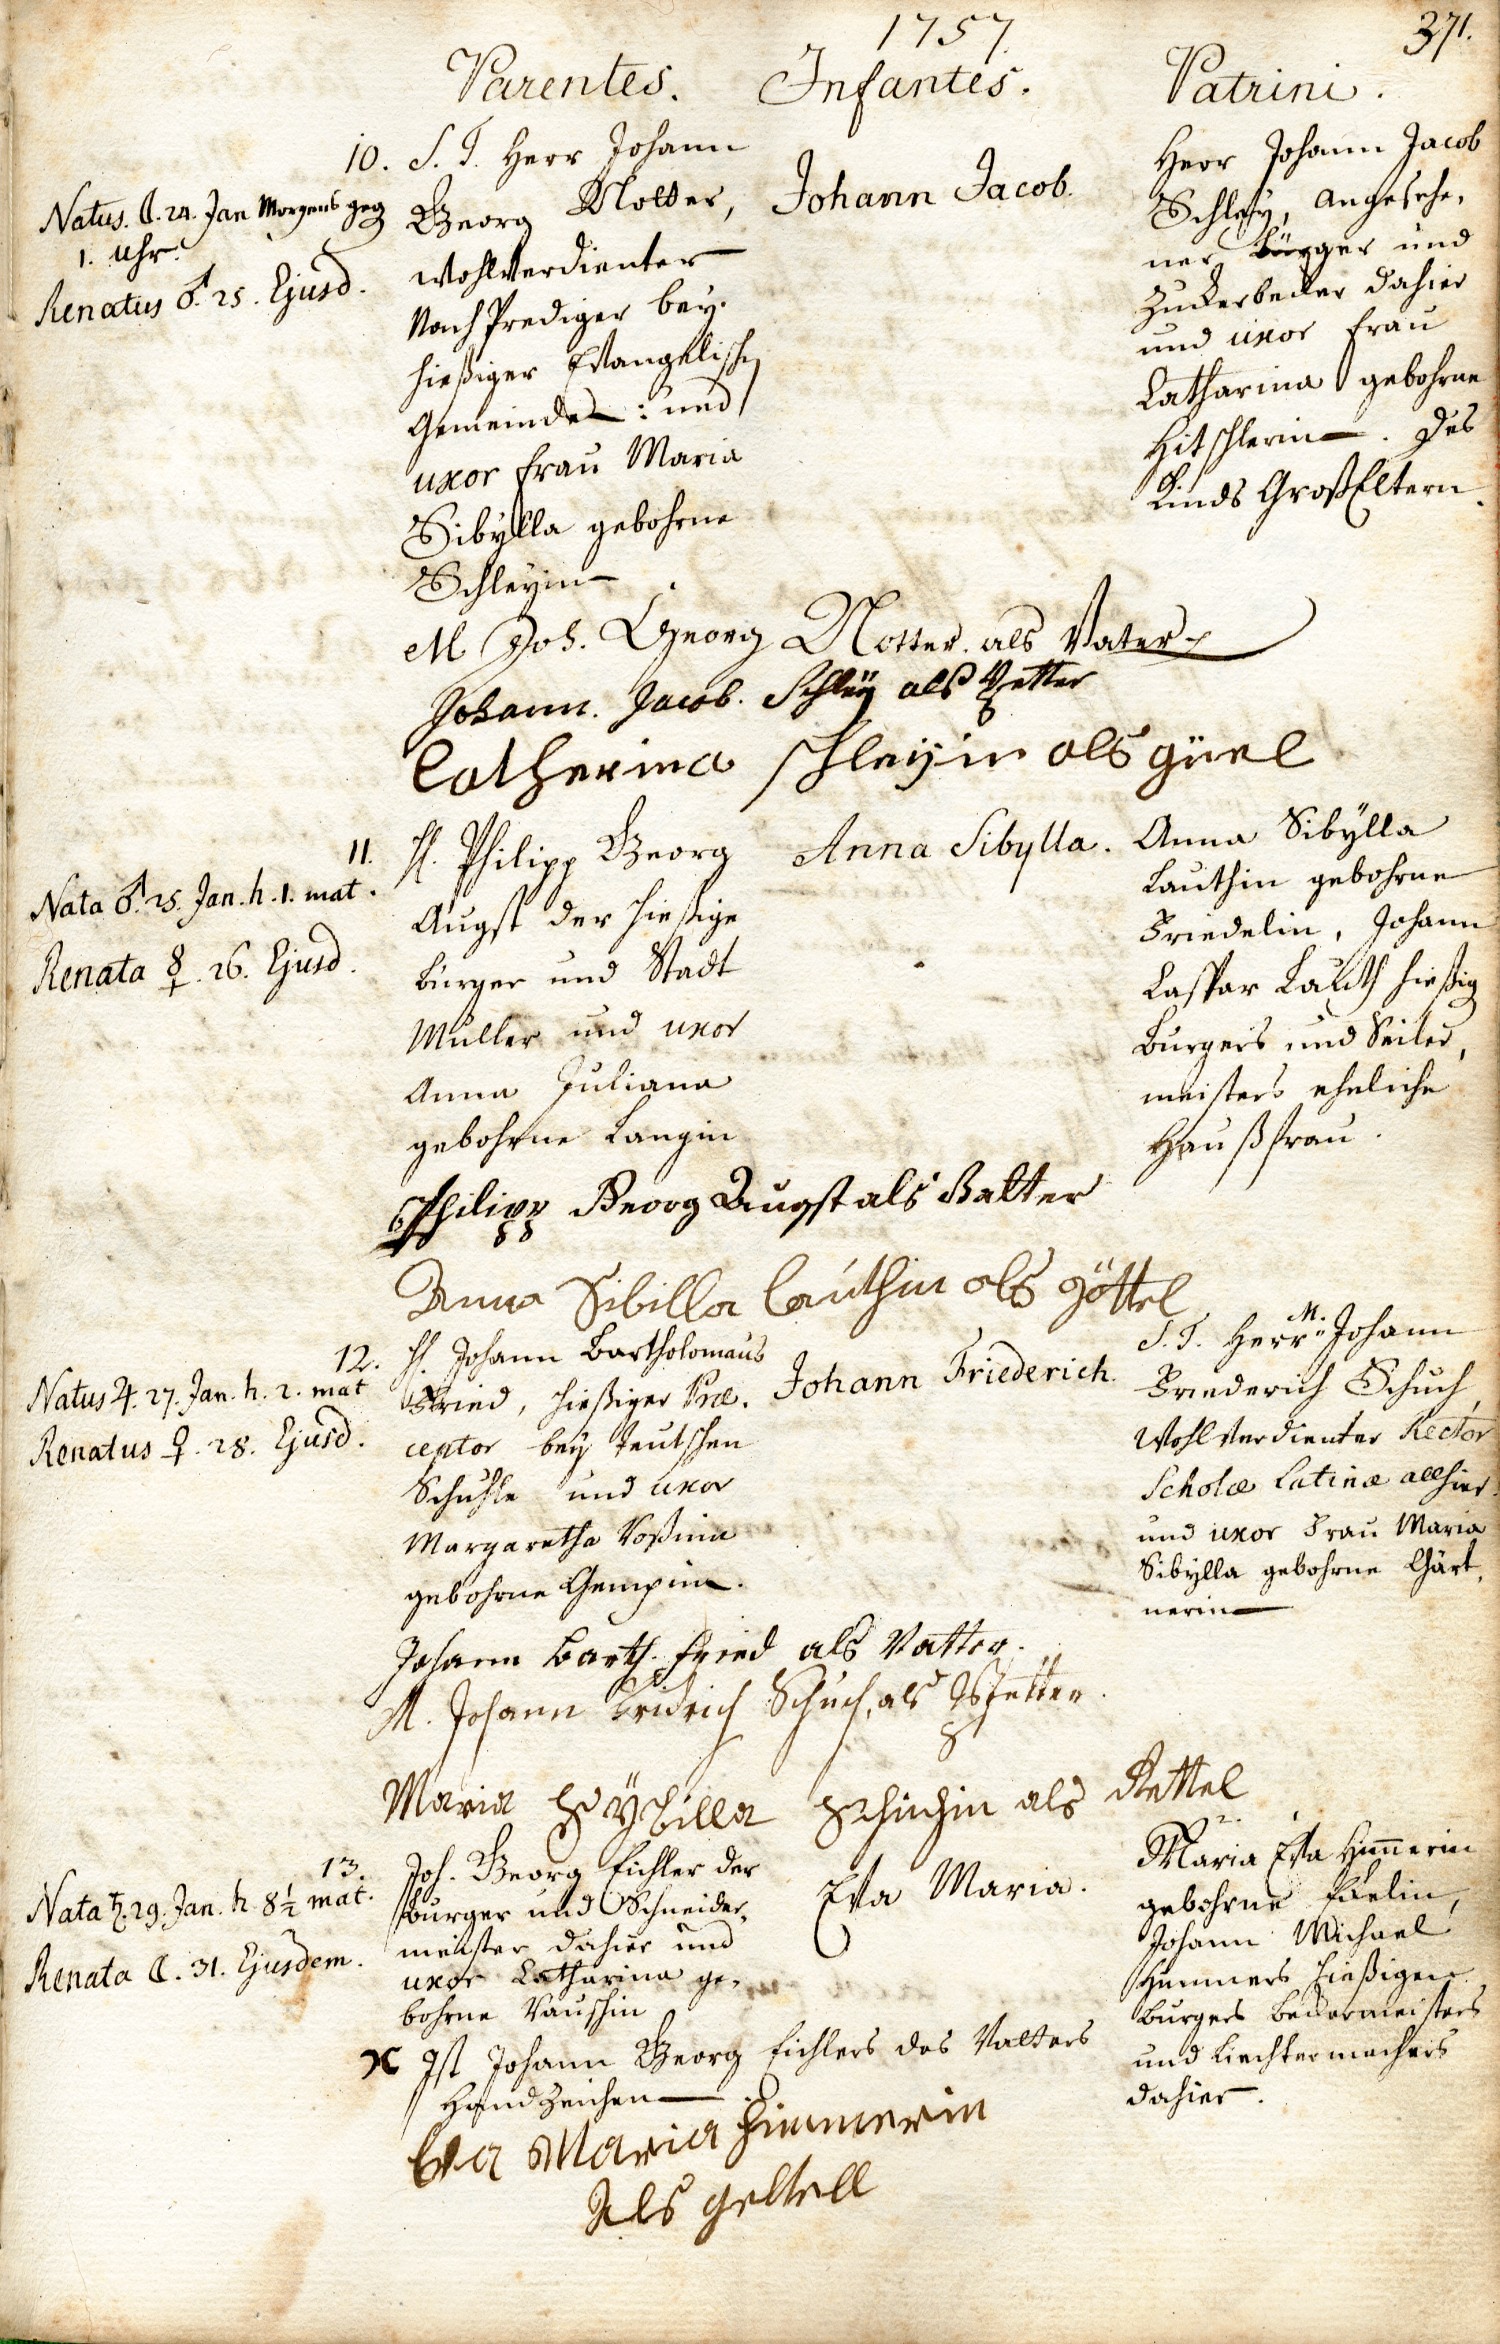 1757.
371.
Parentes. Infantes. Patrini.
10.
Natus. ☾. 24. Jan Morgens geg
1. Uhr.
Renatus ♂. 25. Ejusd.
S. T. Herr Johann
Georg Notter,
wohlverdienter
Nach Prediger bey
hießiger Evangelisch
Gemeinde: und
uxor Frau Maria
Sibÿlla gebohrne
Schleyin
Johann Jacob.
Herr Johann Jacob
Schleÿ, angesehe,
ner bürger und
Zuckerbecker dahier
und uxor Frau
Catharina gebohrne
Hitschlerin. Des
Kinds GroßEltern.
M Joh. Georg Notter. als Vater
Johann. Jacob. Schleÿ als Pfetter
Catherina schleÿin als
11.
Nata ♂. 25. Jan. h. 1. mat.
Renata ☿. 26. Ejusd.
H. Philipp Georg
Augst der hießige
burger und Stadt
Müller und uxor
Anna Juliana
gebohrne Langin
Anna Sibylla.
Anna Sibÿlla
Lauthin gebohrne
Friedelin, Johann
Caspar Lauth hießig
Burgers und Seiler,
meisters eheliche
Haußfrau.
Philipp Georg Augst als Vatter
Anna Sibilla lauthin als göttel
12.
Natus ♃. 27. Jan. h. 2. mat
Renatus ♀. 28. Ejusd.
H. Johann Bartholomäus
Fried, hießiger Præ,
ceptor bey teutschen
Schuhle und uxor
Margaretha Rosina
gebohrne Gempin.
Johann Friederich.
S. T. Herr M. Johann
Friederich Schuch,
Wohlverdienter Rector
Scholæ Latinæ allhier
und uxor Frau Maria
Sibÿlla gebohrne Gärt,
nerin
Johann Barth. Fried als Vatter.
M. Johann Fridrich Schuch, als Pfetter.
Maria Seÿbilla Schuchin als Gettel
13.
Nata ♄. 29. Jan. h. 8½ mat.
Renata ☾. 31. Ejusdem.
Joh. Georg Eichler der
burger und Schneider,
meister dahier und
uxor Catharina ge,
bohrne Rauschin
Eva Maria.
Maria Eva Him̄erin
gebohrne
Johann Michael
Himmers hießigen
burgers beckermeisters
und Liechtermachers
dahier.
X Ist Johann Georg Eichlers des Vatters
Handzeichen
Eva Maria Himmerin
Als gettell